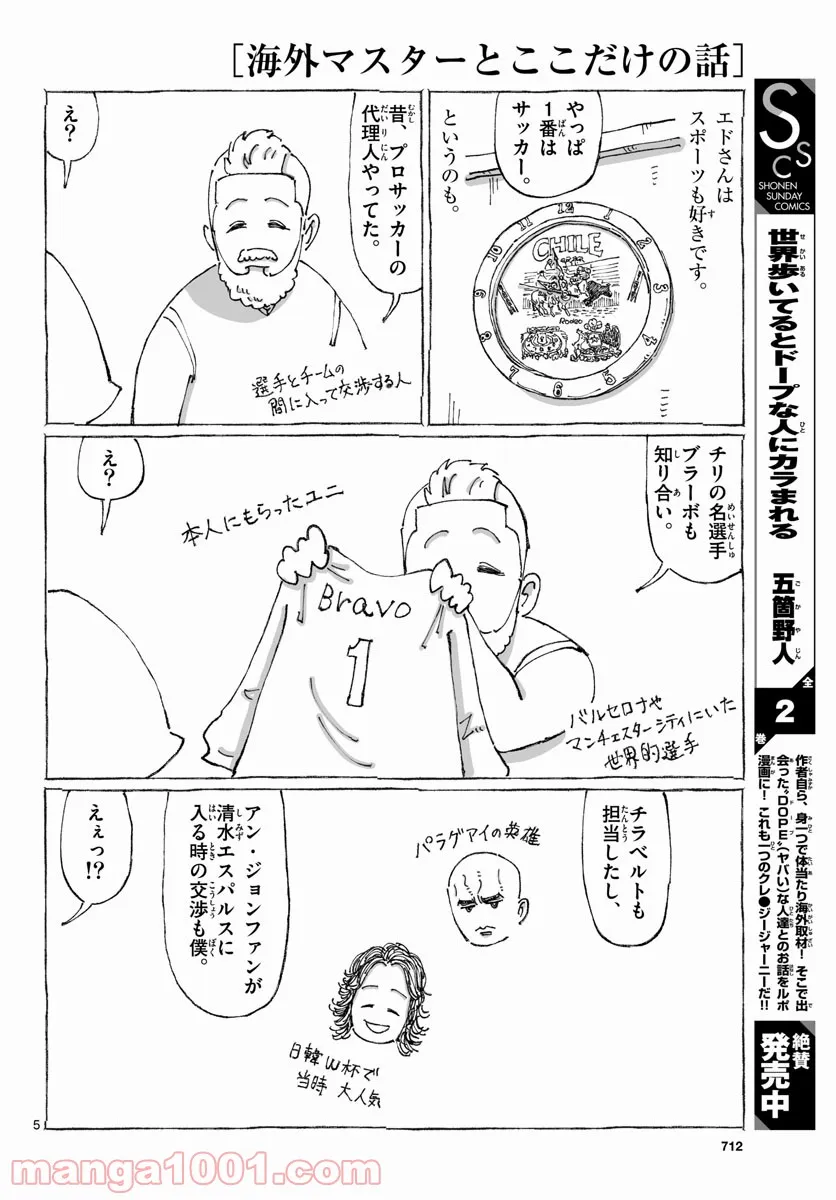 ［海外マスターとここだけの話］
エドさんは
スポーツも好きです。
やっぱ
１番は
サッカー。
というのも。
12
1
2
3
4
5
6
7
8
9
10
11
CHILE
RODEO
昔、プロサッカーの
代理人やってた。
え？
選手とチームの
間に入って交渉する人
チリの名選手
ブラーボも
知り合い。
え？
本人にもらったユニ
Bravo
1
バルセロナや
マンチェスターシティにいた
世界的選手
チラベルトも
担当したし、
パラグアイの英雄
アン・ジョンファンが
清水エスパルスに
入る時の交渉も
僕。
日韓W杯で
当時 大人気
えぇっ!?
5
712
SSC
SHONEN
SUNDAY
COMICS
世界歩いてるとドープな人にカラまれる
五箇野人
全
2
巻
作者自ら、身一つで体当たり海外取材！ そこで出
会った“DOPE”（ヤバい）な人達とのお話をルポ
漫画に！ これも一つのクレ●ジージャーニーだ!!
絶賛
発売中
manga1001.com